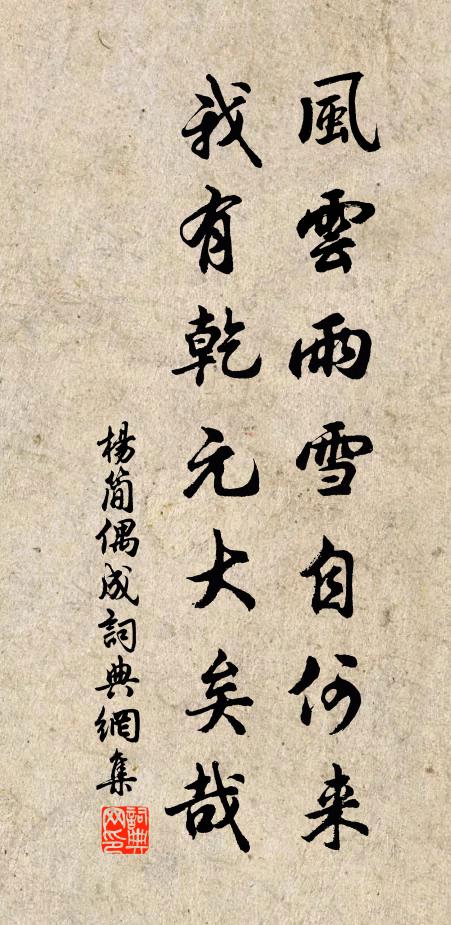 風雲雨雪自何来
我有乾元大矣哉
楊簡偶成詞典網集
詞典網印